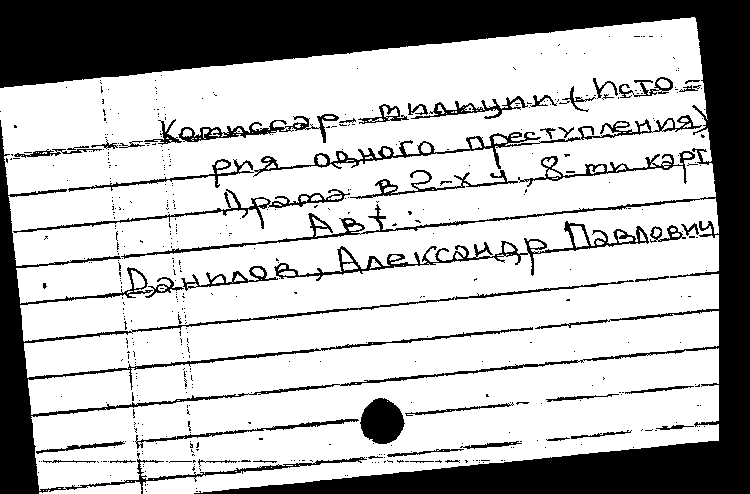 Комиссар милиции (Исто-
рия одного преступления)
Драма в 2-х ч., 8-ми карт
Авт.:
Данилов, Александр Павлович